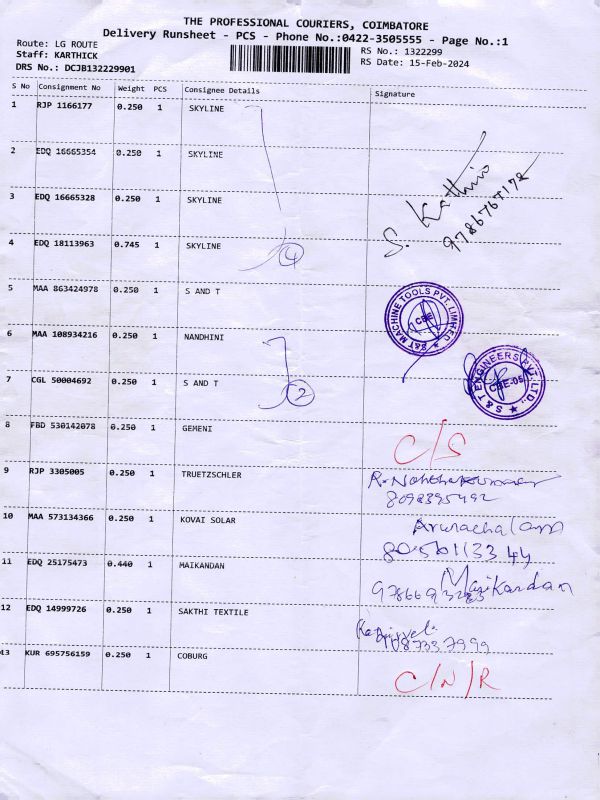 THE PROFESSIONAL COURIERS, COIMBATORE
Delivery Runsheet - PCS - Phone No.:0422-3505555 - Page No.:1
Route: LG ROUTE
RS No.: 1322299
Staff: KARTHICK
RS Date: 15-Feb-2024
DRS No.: DCJB132229901
S No Consignment No Weight PCS Consignee Details Signature
1 RJP 1166177 0.250 1 SKYLINE
2 EDQ 16665354 0.250 1 SKYLINE
3 EDQ 16665328 0.250 1 SKYLINE
S. Karthik
9786767172
4 EDQ 18113963 0.745 1 SKYLINE
4
5 MAA 863424978 0.250 1 S AND T
S&T MACHINE TOOLS PVT. LIMITED
CBE
6 MAA 108934216 0.250 1 NANDHINI
7 CGL 50004692 0.250 1 S AND T
2
S & T ENGINEERS PVT. LTD.,
CBE-05
8 FBD 530142078 0.250 1 GEMENI
C/S
9 RJP 3305005 0.250 1 TRUETZSCHLER
8098395492
10 MAA 573134366 0.250 1 KOVAI SOLAR
Arunachalam
8056113344
11 EDQ 25175473 0.440 1 MAIKANDAN
Manikandan
12 EDQ 14999726 0.250 1 SAKTHI TEXTILE
13 KUR 695756159 0.250 1 COBURG
C/N/R